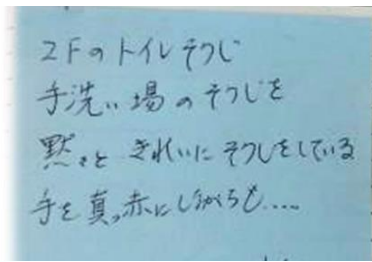 2Fのトイレそうじ
手洗い場のそうじを
黙々と きれいにそうじをしている
手を真っ赤にしながらも....